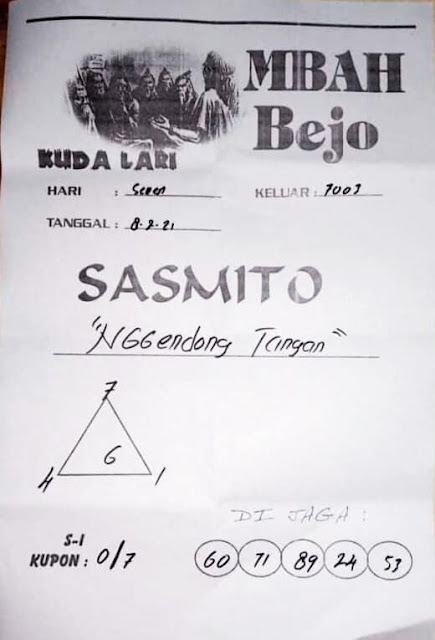 MBAH
Bejo
KUDA LARI
HARI : Senen
KELUAR : 7003
TANGGAL : 8-2-21
SASMITO
"NGGendong Tangan"
7
6
4 1
DI JAGA :
S-1
KUPON : 0/7
60 71 89 24 53